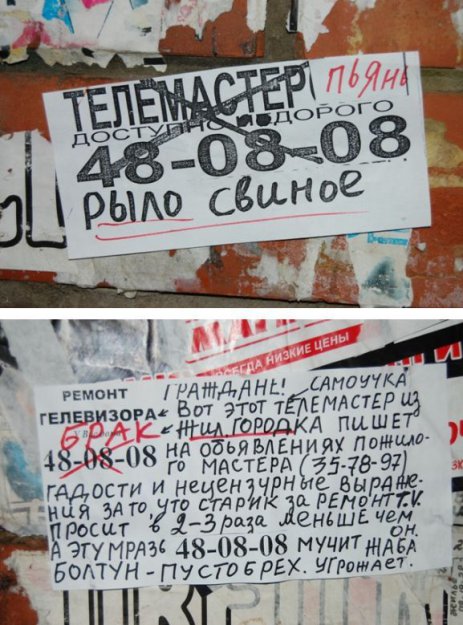 ТЕЛЕМАСТЕР ПЬЯНЬ
ДОСТУПНО НЕДОРОГО
48-08-08
РЫЛО СВИНОЕ
ВСЕГДА НИЗКИЕ ЦЕНЫ
РЕМОНТ ГРАЖДАНЕ! САМОУЧКА
ТЕЛЕВИЗОРА ВОТ ЭТОТ ТЕЛЕМАСТЕР ИЗ
БРАК ЖИЛ.ГОРОДКА ПИШЕТ
48-08-08 НА ОБЪЯВЛЕНИЯХ ПОЖИЛО-
ГО МАСТЕРА (35-78-97)
ГАДОСТИ И НЕЦЕНЗУРНЫЕ ВЫРАЖЕ-
НИЯ ЗА ТО, ЧТО СТАРИК ЗА РЕМОНТ T.V.
ПРОСИТ В 2-3 РАЗА МЕНЬШЕ ЧЕМ ОН.
А ЭТУ МРАЗЬ 48-08-08 МУЧИТ ЖАБА
БОЛТУН - ПУСТОБРЕХ. УГРОЖАЕТ.